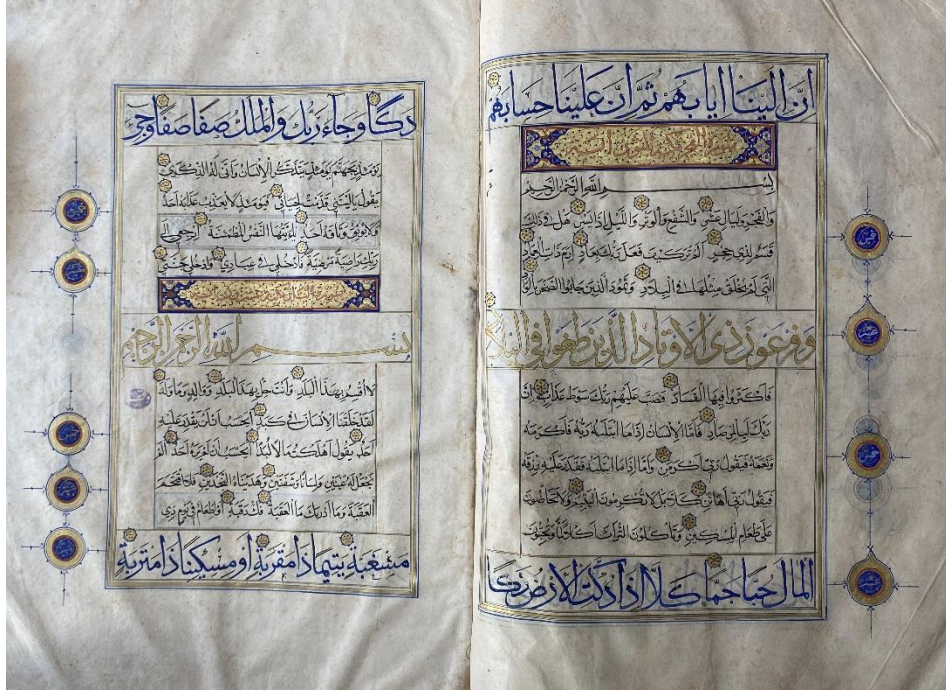 اِنَّ اِلَيْنَا اِيَابَهُمْ ثُمَّ اِنَّ عَلَيْنَا حِسَابَهُمْ
سورة الفجر
بسم الله الرحمن الرحيم
والفجر وليال عشر والشفع والوتر والليل اذا يسر هل في ذلك
قسم لذي حجر الم تر كيف فعل ربك بعاد ارم ذات العماد
التي لم يخلق مثلها في البلاد وثمود الذين جابوا الصخر بالواد
وفرعون ذي الاوتاد الذين طغوا في البلاد
فاكثروا فيها الفساد فصب عليهم ربك سوط عذاب ان
ربك لبالمرصاد فاما الانسان اذا ما ابتليه ربه فاكرمه
ونعمه فيقول ربي اكرمن واما اذا ما ابتليه فقدر عليه رزقه
فيقول ربي اهانن كلا بل لا تكرمون اليتيم ولا تحاضون
على طعام المسكين وتاكلون التراث اكلا لما وتحبون
المال حبا جما كلا اذا دكت الارض دكا
دكا وجاء ربك والملك صفا صفا وجئ
يومئذ بجهنم يومئذ يتذكر الانسان وانى له الذكرى
يقول ياليتني قدمت لحياتي فيومئذ لا يعذب عذابه احد
ولا يوثق وثاقه احد يا ايتها النفس المطمئنة ارجعي الى
ربك راضية مرضية فادخلي في عبادي وادخلي جنتي
بسم الله الرحمن الرحيم
لا اقسم بهذا البلد وانت حل بهذا البلد ووالد وما ولد
لقد خلقنا الانسان في كبد ايحسب ان لن يقدر عليه
احد يقول اهلكت مالا لبدا ايحسب ان لم يره احد الم
نجعل له عينين ولسانا وشفتين وهديناه النجدين فلا اقتحم
العقبة وما ادريك ما العقبة فك رقبة او اطعام في يوم ذي
مسغبة يتيما ذا مقربة او مسكينا ذا متربة